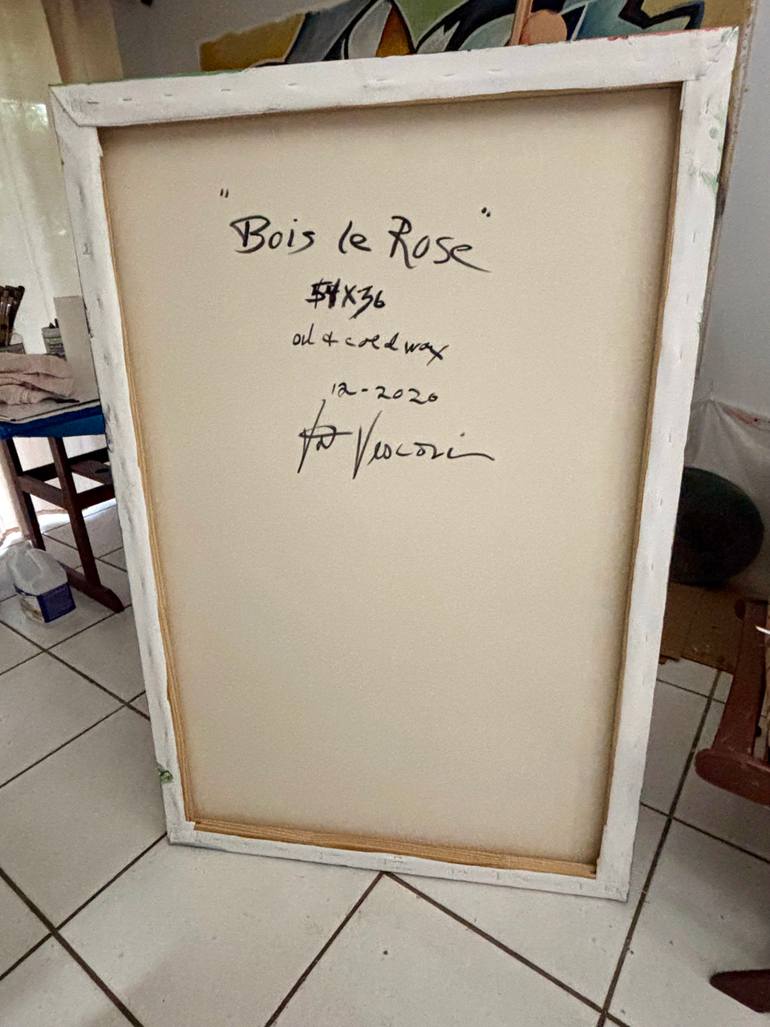 "Bois le Rose"
54X36
oil & cold wax
12-2020